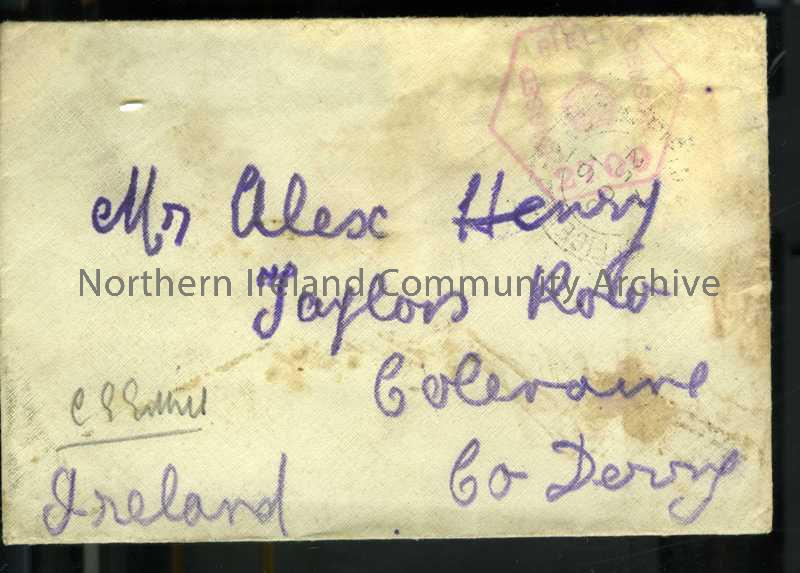 PASSED CENSOR
2908
Mr Alex Henry
Northern Ireland Community Archive
Taylors Row
Coleraine
Co Derry
Ireland